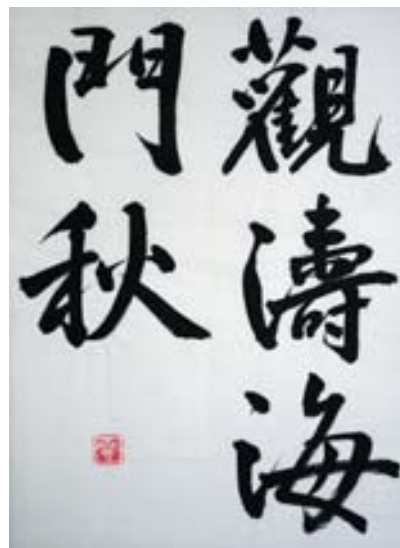 觀濤海
門秋